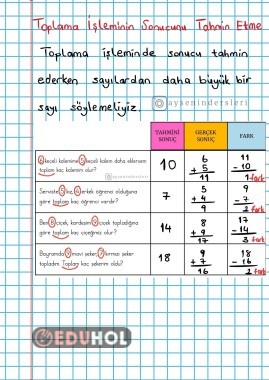 Toplama İşleminin Sonucunu Tahmin Etme
Toplama işleminde sonucu tahmin
ederken sayılardan daha büyük bir
sayı söylemeliyiz.
@aysenindersleri
TAHMİNİ SONUÇ GERÇEK SONUÇ FARK
6 keçeli kalemime 5 keçeli kalem daha eklersem
toplam kaç kalemim olur?
10
6 + 5 11
11 - 10 1 fark
Serviste 5 kız, 4 erkek öğrenci olduğuna
göre toplam kaç öğrenci vardır?
7
5 + 4 9
9 - 7 2 fark
Ben 8 çiçek, kardeşim 9 çiçek topladığına
göre toplam kaç çiçeğimiz olur?
14
8 + 9 17
17 - 14 3 fark
Bayramda 9 mavi şeker, 7 kırmızı şeker
topladım. Toplam kaç şekerim oldu?
18
9 + 7 16
18 - 16 2 fark
EDUHOL